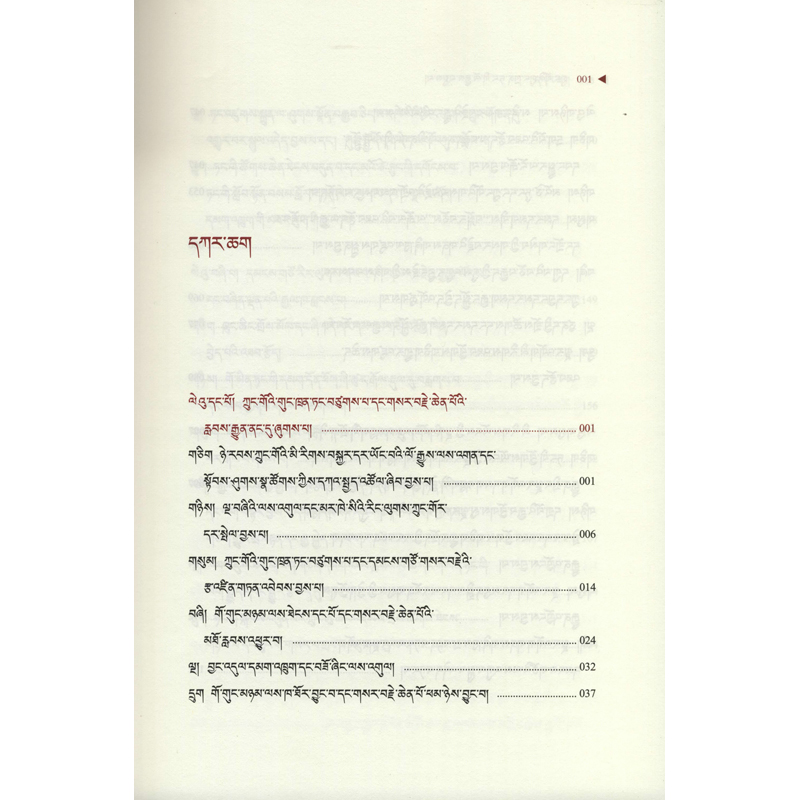 001 ◀
དཀར་ཆག
ལེའུ་དང་པོ། ཀྲུང་གོའི་གུང་ཁྲན་ཏང་བཙུགས་པ་དང་གསར་བརྗེ་ཆེན་པོའི་
རླབས་རྒྱུན་ནང་དུ་ཞུགས་པ། 001
གཅིག ཉེ་རབས་ཀྲུང་གོའི་མི་རིགས་བསྐྱར་དར་ཡོང་བའི་ལོ་རྒྱུས་ལས་འགན་དང་
སྟོབས་ཤུགས་སྣ་ཚོགས་ཀྱིས་དཀའ་སྤྱད་འཚོལ་ཞིབ་བྱས་པ། 001
གཉིས། ལྔ་བཞིའི་ལས་འགུལ་དང་མར་ཁེ་སིའི་རིང་ལུགས་ཀྲུང་གོར་
དར་སྤེལ་བྱས་པ། 006
གསུམ། ཀྲུང་གོའི་གུང་ཁྲན་ཏང་བཙུགས་པ་དང་དམངས་གཙོ་གསར་བརྗེའི་
རྩ་འཛིན་གཏན་འབེབས་བྱས་པ། 014
བཞི། གོ་གུང་མཉམ་ལས་ཐེངས་དང་པོ་དང་གསར་བརྗེ་ཆེན་པོའི་
མཐོ་རླབས་འཕྱུར་བ། 024
ལྔ། བྱང་འདུལ་དམག་འཁྲུག་དང་བཟོ་ཞིང་ལས་འགུལ། 032
དྲུག གོ་གུང་མཉམ་ལས་ཁ་ཐོར་བྱུང་བ་དང་གསར་བརྗེ་ཆེན་པོ་ཕམ་ཉེས་བྱུང་བ། 037